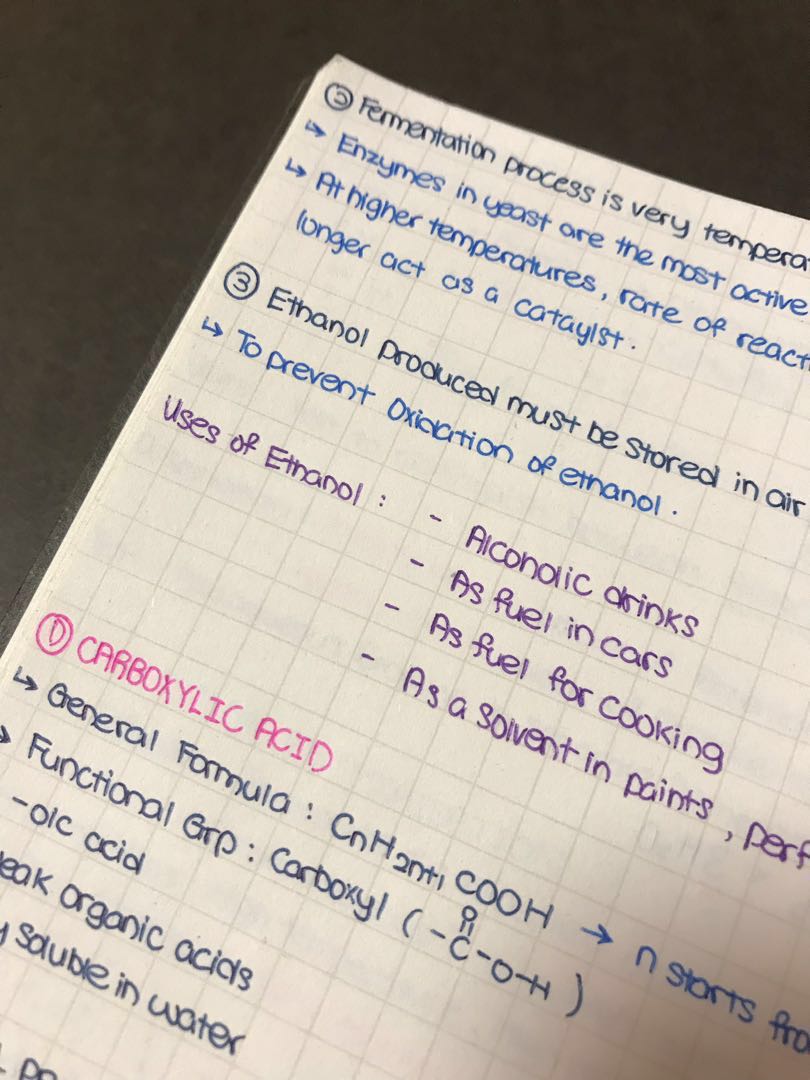 ② Fermentation process is very tempera
↳ Enzymes in yeast are the most active
↳ At higher temperatures, rate of react
longer act as a cataylst.
③ Ethanol produced must be stored in air
↳ To prevent oxidation of ethanol.
Uses of Ethanol : - Alcoholic drinks
- As fuel in cars
- As fuel for cooking
- As a solvent in paints, perf
① CARBOXYLIC ACID
↳ General Formula : CnH2n+1 COOH → n starts fro
Functional Grp : Carboxyl (-C-O-H)
O
-oic acid
eak organic acids
soluble in water